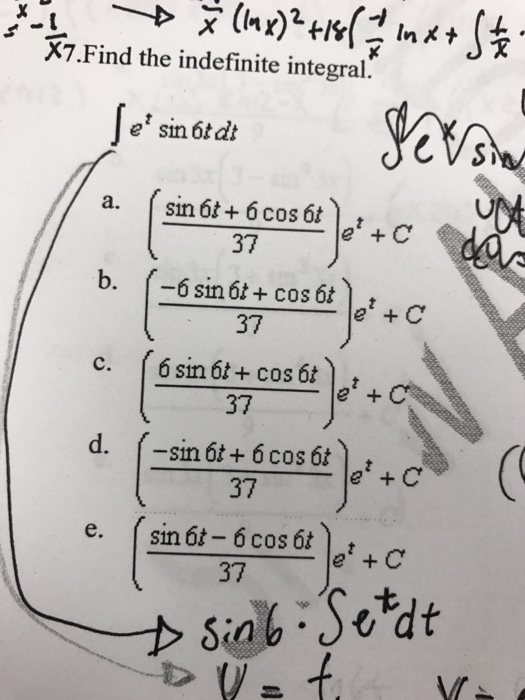 → 1/x (ln x)² + 18(-1/x ln x + ∫ 1/x
7.Find the indefinite integral.
∫ e^t sin 6t dt
∫ e^x sin
a. ((sin 6t + 6 cos 6t)/37) e^t + C
b. ((-6 sin 6t + cos 6t)/37) e^t + C
c. ((6 sin 6t + cos 6t)/37) e^t + C
d. ((-sin 6t + 6 cos 6t)/37) e^t + C
e. ((sin 6t - 6 cos 6t)/37) e^t + C
sin 6 · ∫ e^t dt
U = t V =